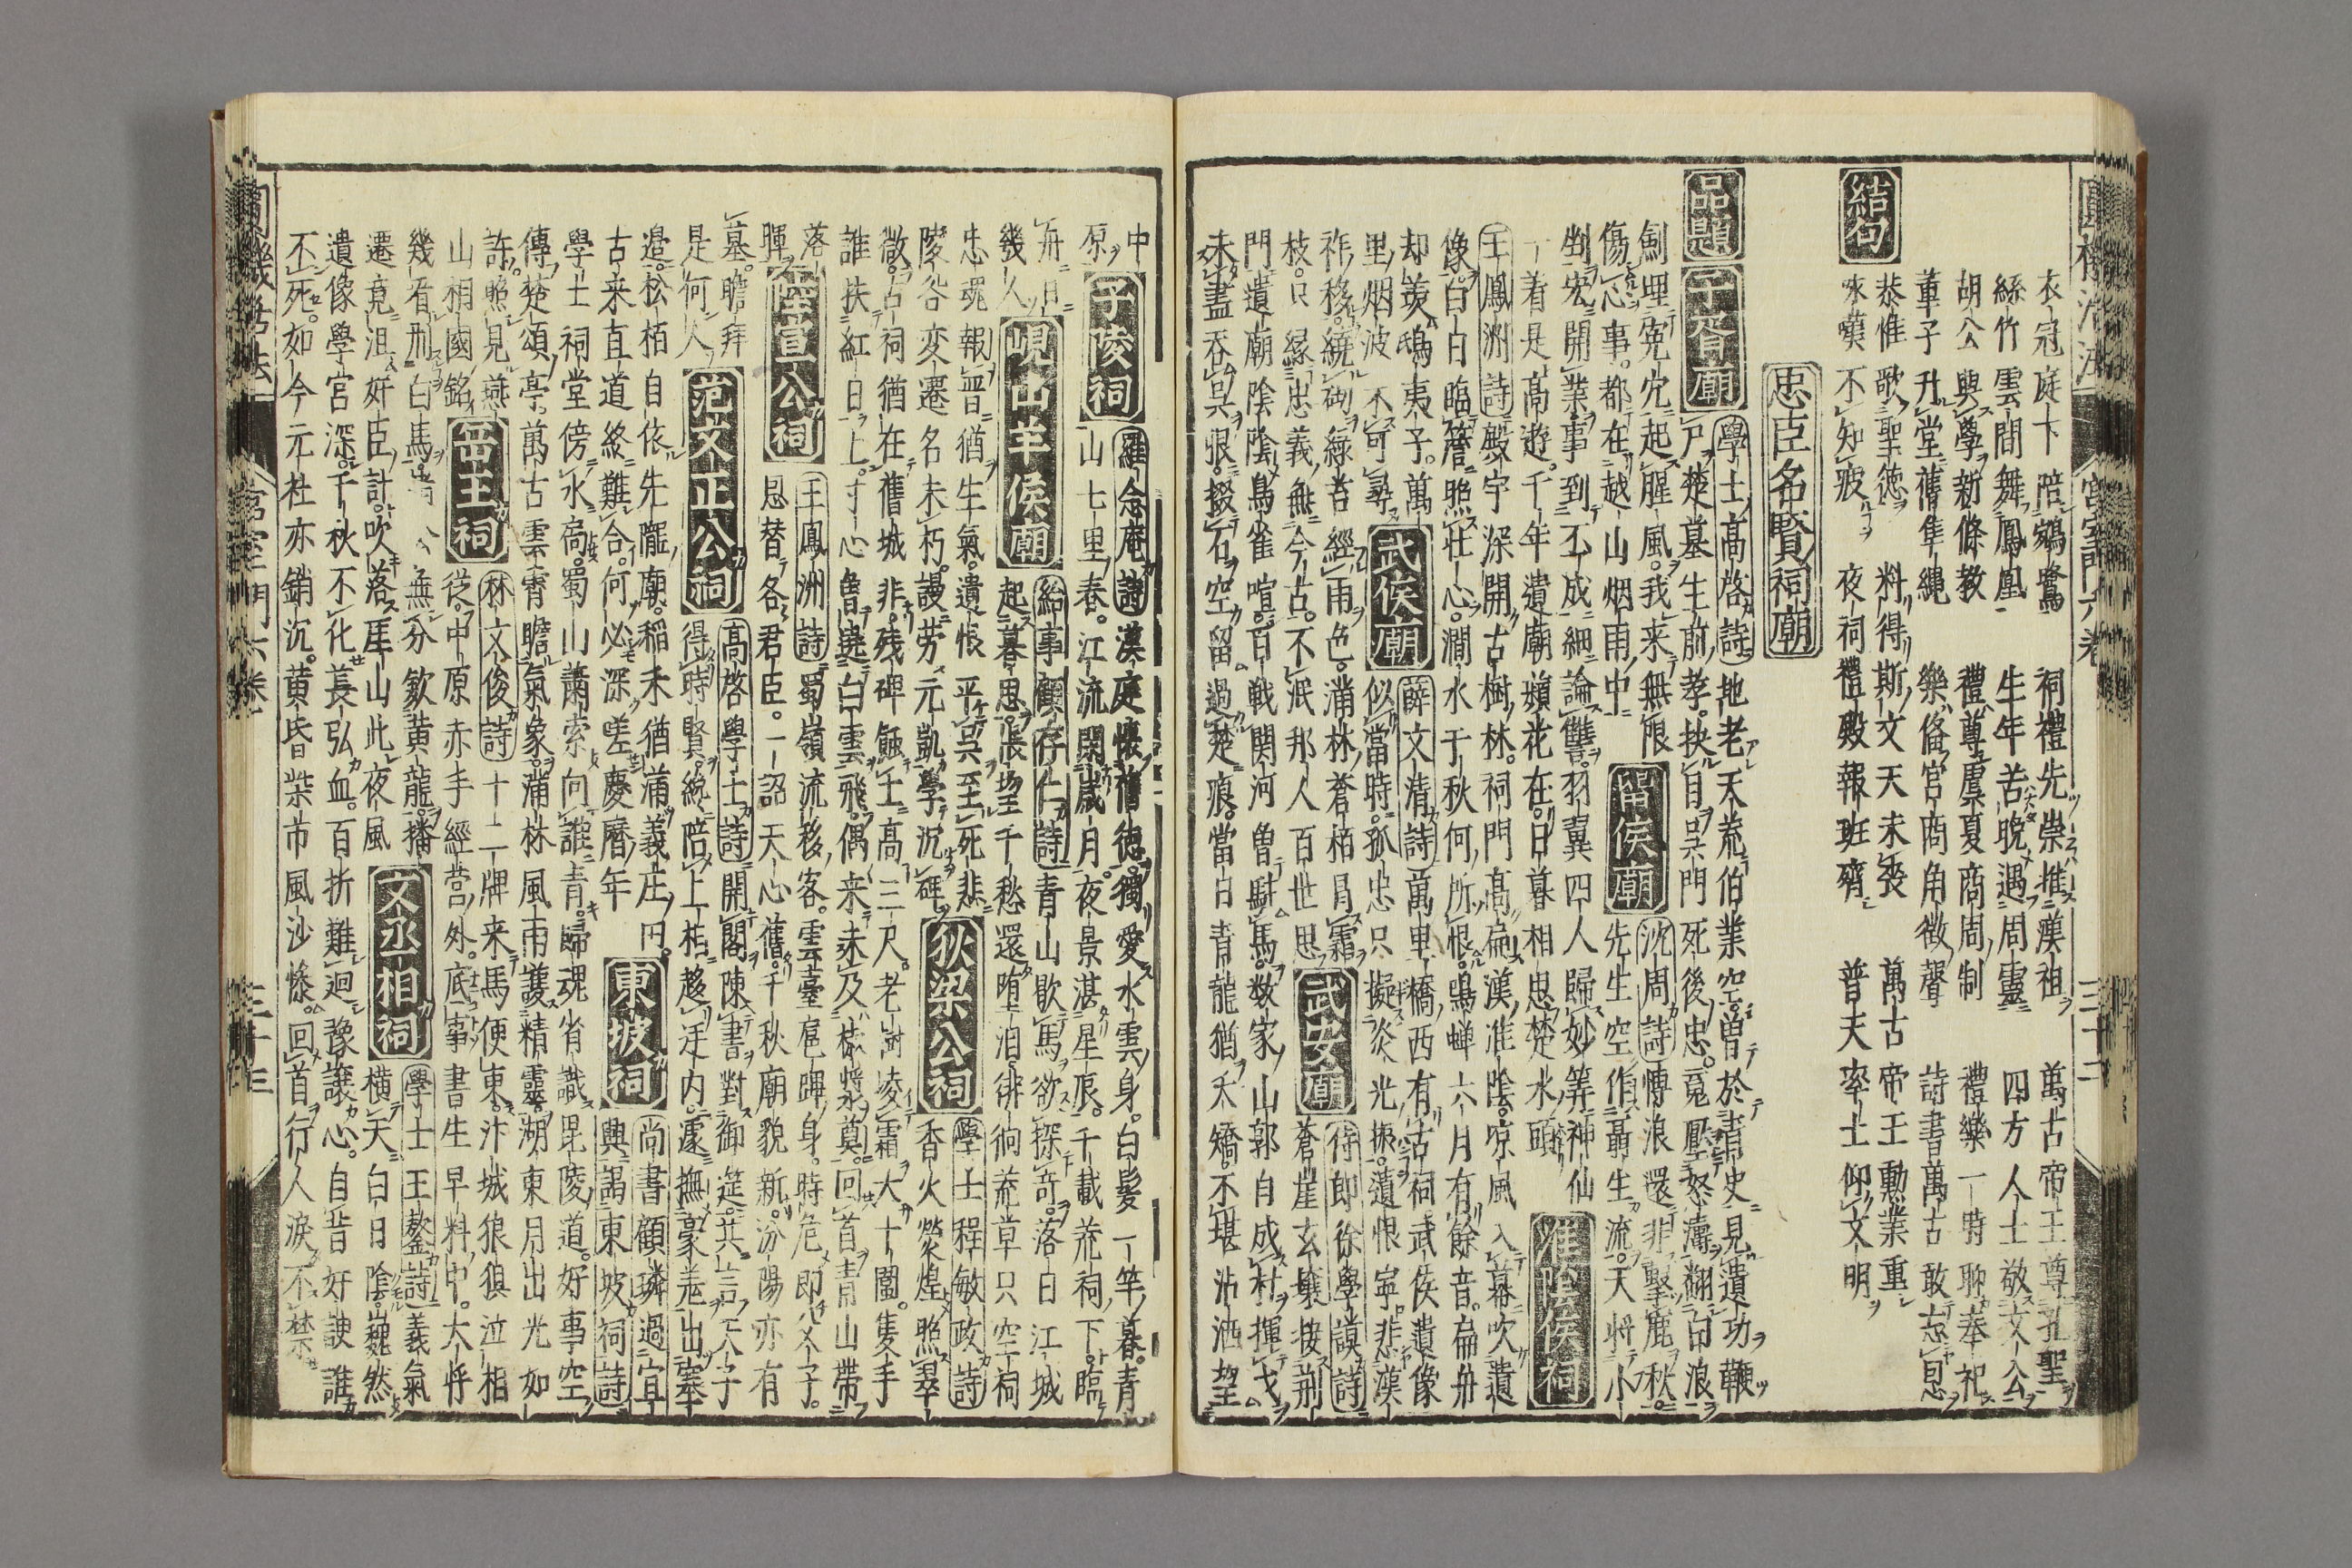 衣冠庭下陪鵷鷺 祠禮先崇推漢祖 萬古帝王尊孔聖
絲竹雲間舞鳳凰 生年苦晚遇周靈 四方人士敬文公
胡公與學新條教 禮尊虞夏商周制 禮樂一時聊奉祀
章子升堂舊準繩 樂俻宮商角徵聲 詩書萬古敢忘恩
結句 恭惟歌聖徳 料得斯文天未喪 萬古帝王勲業重
咏嘆不知疲 夜祠禮殿報班齊 普天率土仰文明
忠臣名賢祠廟
品題 子胥廟 學士高啓詩 地老天荒伯業空曽於青史見遺功鞭
尸楚墓生前孝抉目呉門死後忠䰟壓怒濤翻白浪
劍埋寃穴起腥風我来無限 留侯廟 沈周詩 愽浪還非擊鹿秋
傷心事都在越山烟雨中 先生空作聶生流天将小
劉宏開業事到丕成細論讐羽翼四人歸妙筭神仙
一着是高遊千年遺廟蘋花在日暮相思楚水頭 淮陰侯祠
王鳳洲詩 殿宇深開古樹林祠門高扁漢淮陰凉風入幕吹遺
像白日臨簷照壮心澗水于秋何所恨鳴蝉六月有餘音扁舟
却羡鴟夷子萬 武侯廟 薛文清詩 萬里橋西有古祠武侯遺像
里烟波不可尋 似當時孤忠只擬炎光振遺恨寧悲漢
祚移繞砌緑苔經雨色滿林蒼柏冐霜 武安廟 侍郎徐學謨詩
枝只縁忠義無今古不泯那人百世思 蒼崖玄壤接荊
門遺廟陰陰鳥雀喧百戦関河曽駐馬数家山郭自成村揮戈
未盡吞呉恨掇石空留過楚痕當日青龍猶夭矯不堪沾洒望
中 子陵祠 羅念庵詩 漢庭懐舊徳獨愛水雲身白髪一竿暮青
原 山七里春江流閑歳月夜景湛星辰千載荒祠下臨
舟泪 峴山羊侯廟 給事顧存仁詩 青山歇馬欲探奇落日江城
幾人 起暮思悵望千愁還堕泪徘徊荒草只空祠
忠魂報晋猶生氣遺恨平呉至死悲 狄梁公祠 學士程敏政詩
陵谷変遷名未朽謾劳元凱學沉碑 香火熒煌照翠
微古祠猶在舊城非残碑蝕土高三尺老樹凌霜大十圍隻手
誰扶紅日上寸心曽遶白雲飛偶来未及椒漿奠回首青山帶
落 陸宣公祠 王鳳洲詩 蜀嶺流移客雲臺扈蹕身時危即父子
暉 恩替各君臣一詔天心舊千秋廟貌新汾陽亦有
墓瞻拜 范文正公祠 高啓學士詩 開閣陳書對御筵共言天子
是何人 得時賢緫陪上相趍迋内遽撫豪羌出塞
邉松栢自依先隴廟稲禾猶蒲義庄円 東坡祠 尚書顧璘過宜
古来直道終難合何必深嗟慶暦年 興謁東坡祠詩
學士祠堂傍水扃蜀山蕭索向誰青歸魂省識毘陵道好事空
傳楚頌亭萬古雲霄瞻氣象滿林風雨護精靈湖東月出光如
許照見燕 岳王祠 林文俊詩 十二牌来馬便東汴城狼狽泣相
山相國銘 従中原赤手經営外底事書生早料中大将
幾看刑白馬 無分飲黄龍播 文丞相祠 學士王鏊詩 義氣
遷竟沮奸臣計吹落厓山此夜風 横天白日陰巍然
遺像學宮深千秋不化萇弘血百折難迴豫譲心自昔好諛誰
不死如今元社亦銷沉黄昏柴市風沙惨回首行人淚不禁